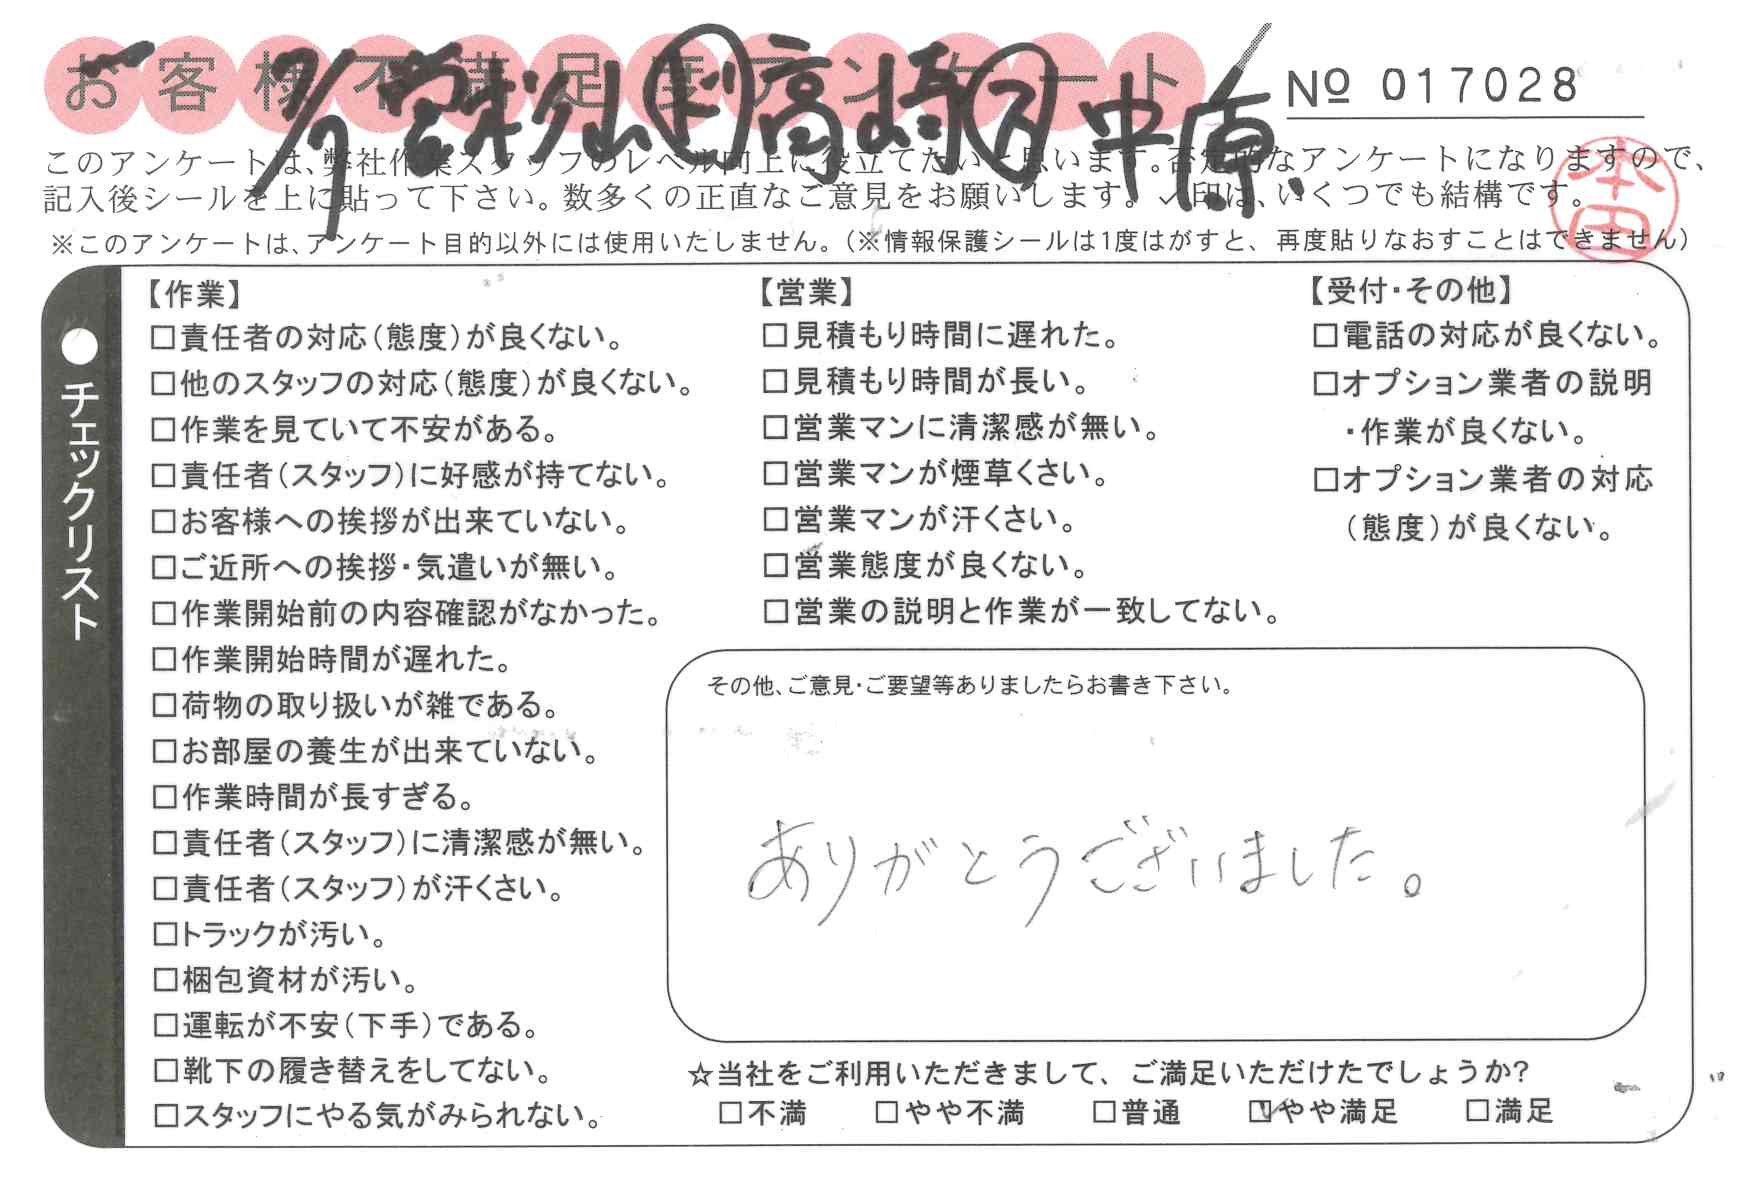 お客様不満足度アンケート
7/7 営杉山 高崎 中原
№ 017028
このアンケートは、弊社作業スタッフのレベル向上に役立てたいと思います。否定的なアンケートになりますので、
記入後シールを上に貼って下さい。数多くの正直なご意見をお願いします。✓印は、いくつでも結構です。
本田
※このアンケートは、アンケート目的以外には使用いたしません。(※情報保護シールは1度はがすと、再度貼りなおすことはできません)
●チェックリスト
【作業】
□責任者の対応(態度)が良くない。
□他のスタッフの対応(態度)が良くない。
□作業を見ていて不安がある。
□責任者(スタッフ)に好感が持てない。
□お客様への挨拶が出来ていない。
□ご近所への挨拶・気遣いが無い。
□作業開始前の内容確認がなかった。
□作業開始時間が遅れた。
□荷物の取り扱いが雑である。
□お部屋の養生が出来ていない。
□作業時間が長すぎる。
□責任者(スタッフ)に清潔感が無い。
□責任者(スタッフ)が汗くさい。
□トラックが汚い。
□梱包資材が汚い。
□運転が不安(下手)である。
□靴下の履き替えをしてない。
□スタッフにやる気がみられない。
【営業】
□見積もり時間に遅れた。
□見積もり時間が長い。
□営業マンに清潔感が無い。
□営業マンが煙草くさい。
□営業マンが汗くさい。
□営業態度が良くない。
□営業の説明と作業が一致してない。
【受付・その他】
□電話の対応が良くない。
□オプション業者の説明
・作業が良くない。
□オプション業者の対応
(態度)が良くない。
その他、ご意見・ご要望等ありましたらお書き下さい。
ありがとうございました。
☆当社をご利用いただきまして、ご満足いただけたでしょうか?
□不満 □やや不満 □普通 ☑やや満足 □満足